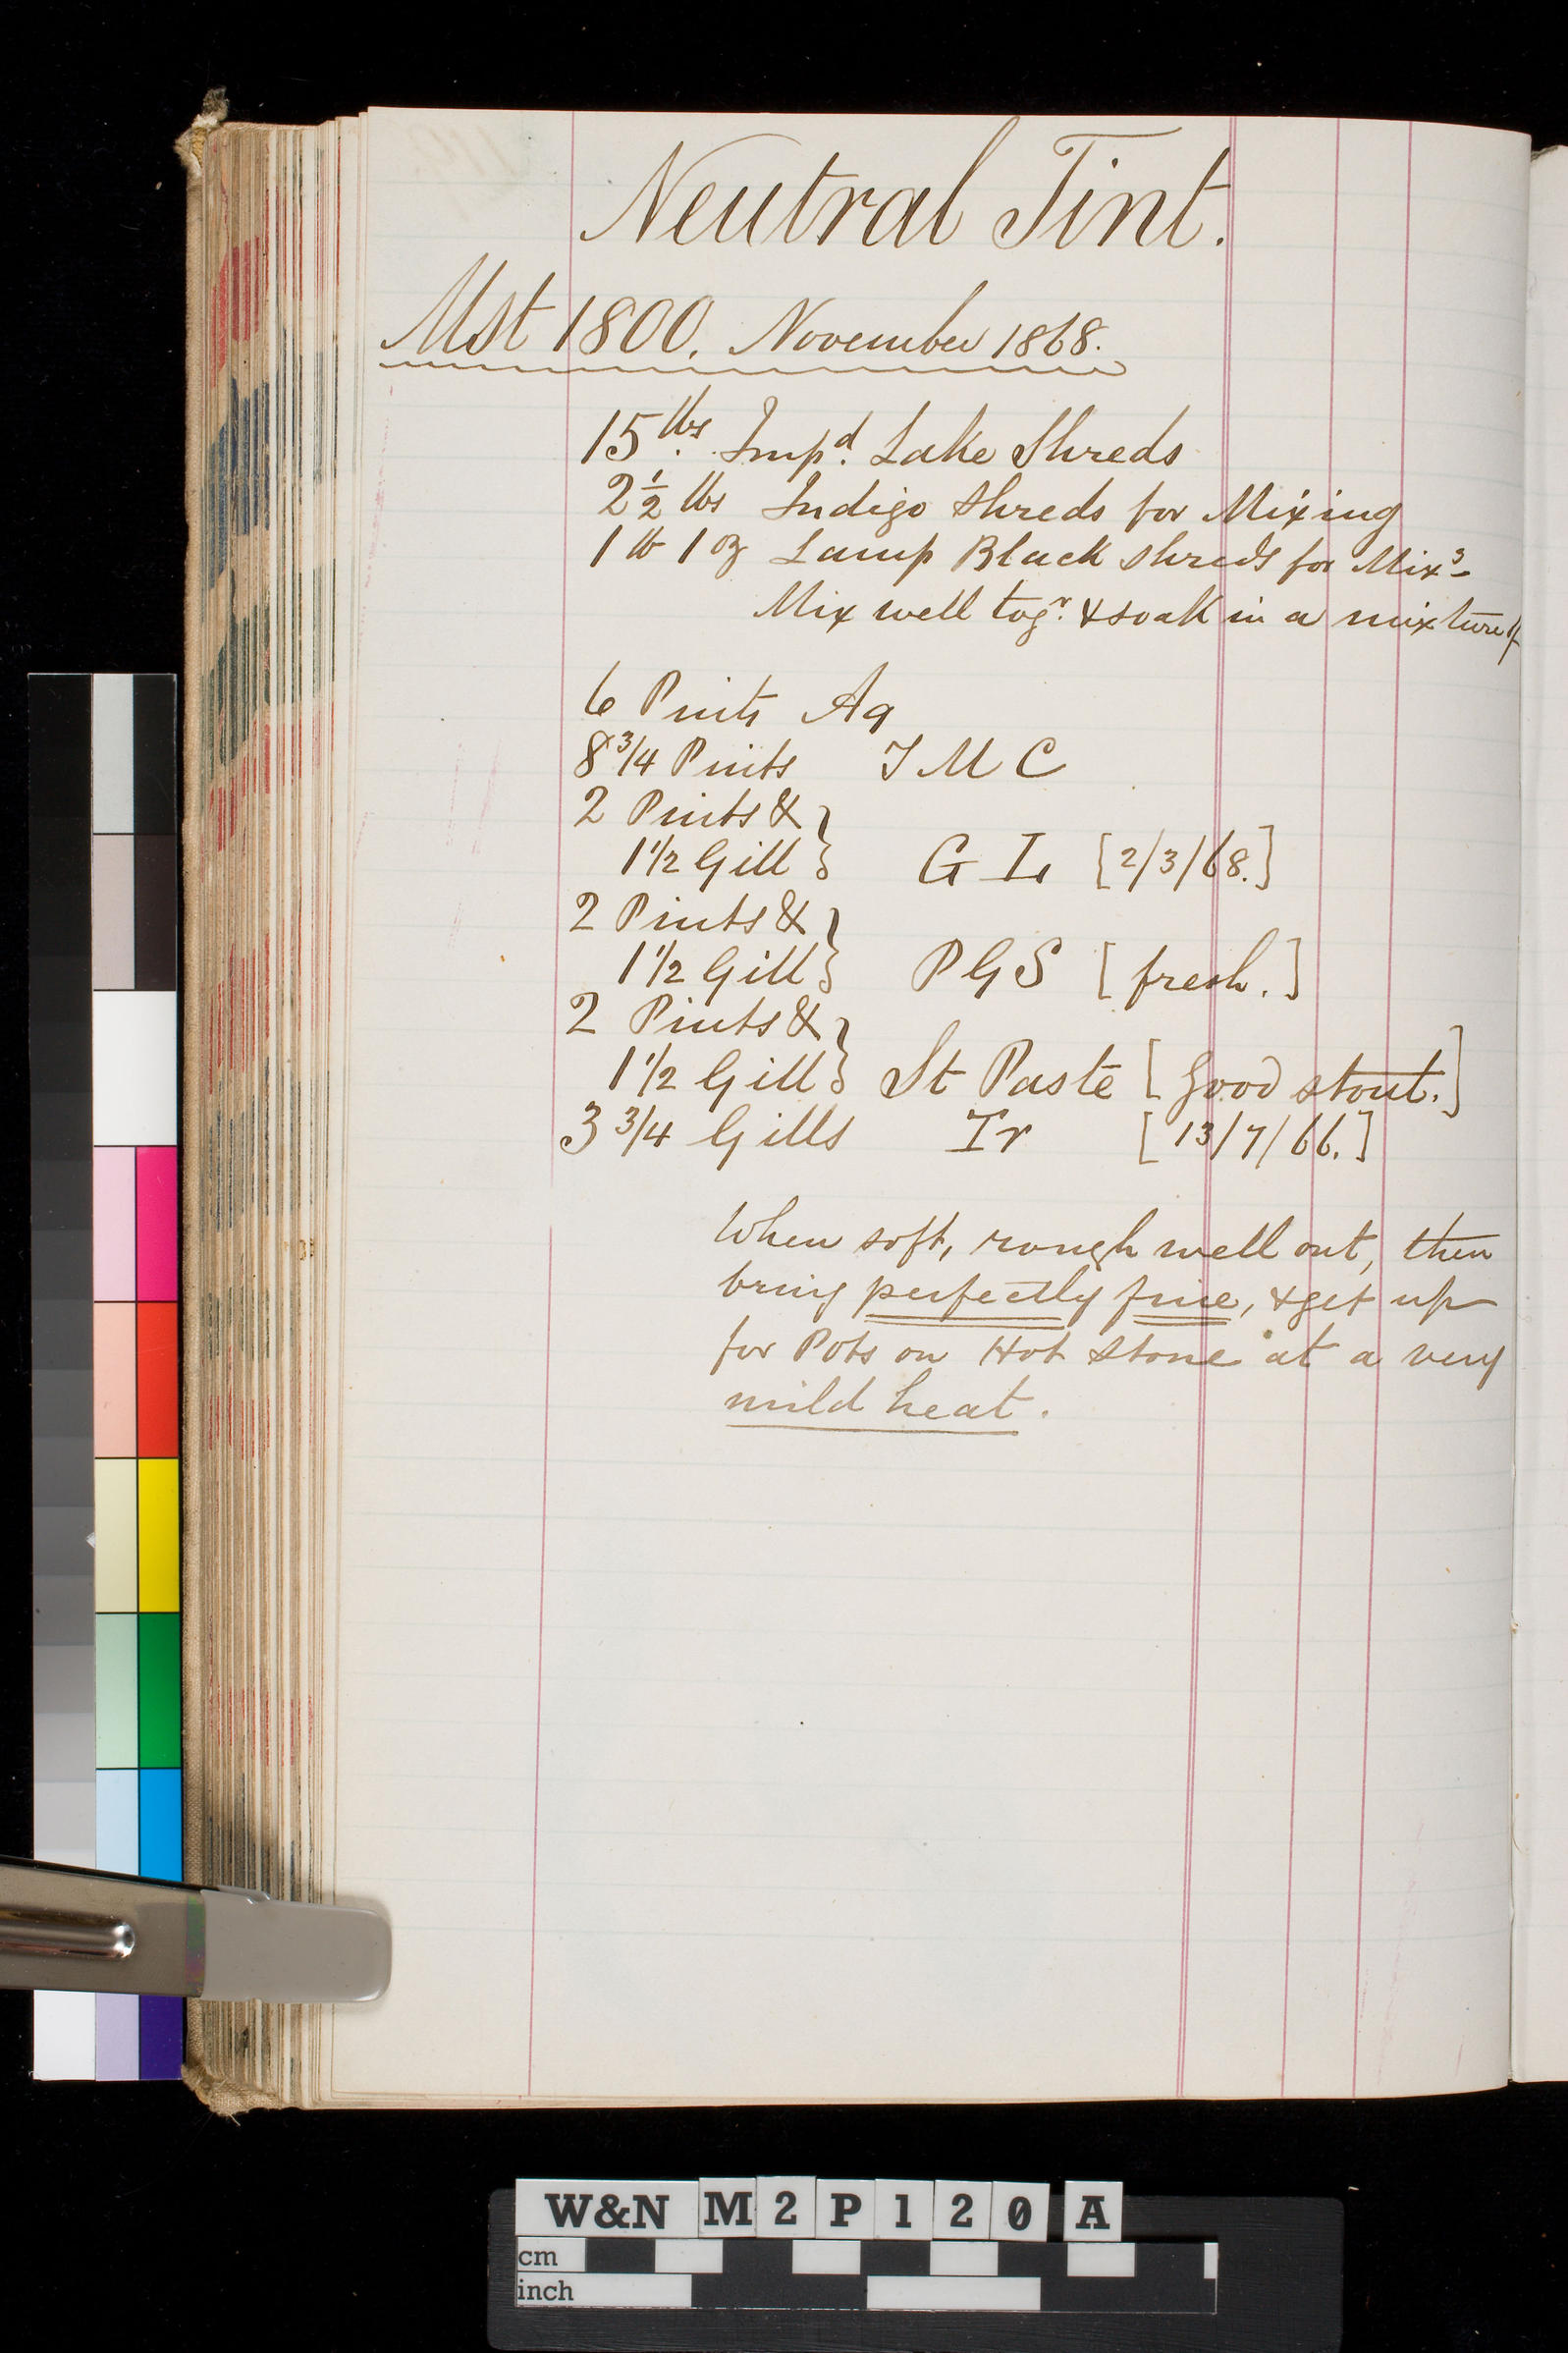 Neutral Tint.
Mst 1800. November 1868.
15 lbs Impd. Lake Shreds
2 1/2 lbs Indigo Shreds for Mixing
1 lb 1 oz Lamp Black shreds for Mixg
Mix well togr. & soak in a mixture of
6 Pints Aq
8 3/4 Pints T M C
2 Pints &
1 1/2 Gill } G L [2/3/68.]
2 Pints &
1 1/2 Gill } P G S [fresh.]
2 Pints &
1 1/2 Gill } St Paste [Good stout.]
3 3/4 Gills Tr [13/7/66.]
When soft, rough well out, then
bring perfectly fine, & get up
for Pots on Hot Stone at a very
mild heat.
W&N M2P120 A
cm
inch